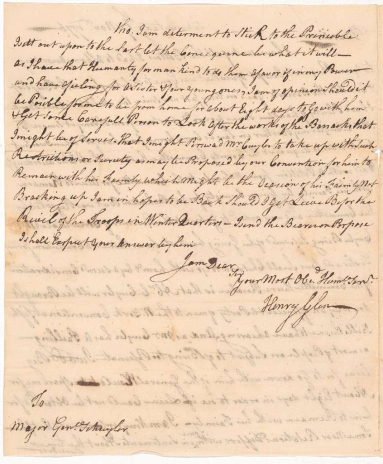 Tho I am determent to Stick to the Principle
I sett out upon to the Last let the Consequence be what it will—
as I have that Humanity for man kind to do them a favor if in my Power
and have feeling for a Sister & four young ones I am of opinion should it
be Posible for me to be from home for about Eight days to go with him
& Get some Carefull Person to Look after the works of the Barracks that
I might be of Servis that I might Forward Mr Cuyler to take up with such
Restrictions or Surety as may be Proposed by our Convention for him to
Remain with his Family which might be the Ocasion of his Family Not
Breaking up I am in hopes to be Back Should I get Leave Before the
Arivel of the Troops in Winter Quarters— I send the Bearer on Porpose
I shall Expect your Answer by him
I am Dear
Your Most Obed Huml Servt
Henry Glen
To
Major Genl Schuyler